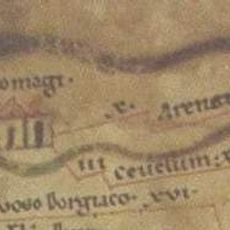 omagi.
.X. Arena
III Ceuelum:X
uoso borgiaco .XVI.